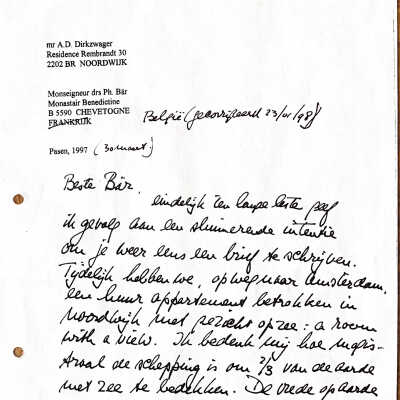 mr A.D. Dirkzwager
Residence Rembrandt 30
2202 BR NOORDWIJK
Monseigneur drs Ph. Bär
Monastair Benedictine
B 5590 CHEVETOGNE
FRANKRIJK
België (gecorrigeerd 23/VI/98)
Pasen, 1997 (30 maart)
Beste Bär,
eindelijk ten lange leste geef
ik gevolg aan een sluimerende intentie
om je weer eens een brief te schrijven.
Tijdelijk hebben we, op weg naar Amsterdam,
een huur appartement betrokken in
Noordwijk met gezicht op zee: a room
with a view. Ik bedenk mij hoe magis-
traal de schepping is om 2/3 van de aarde
met zee te bedekken. De vrede op aarde